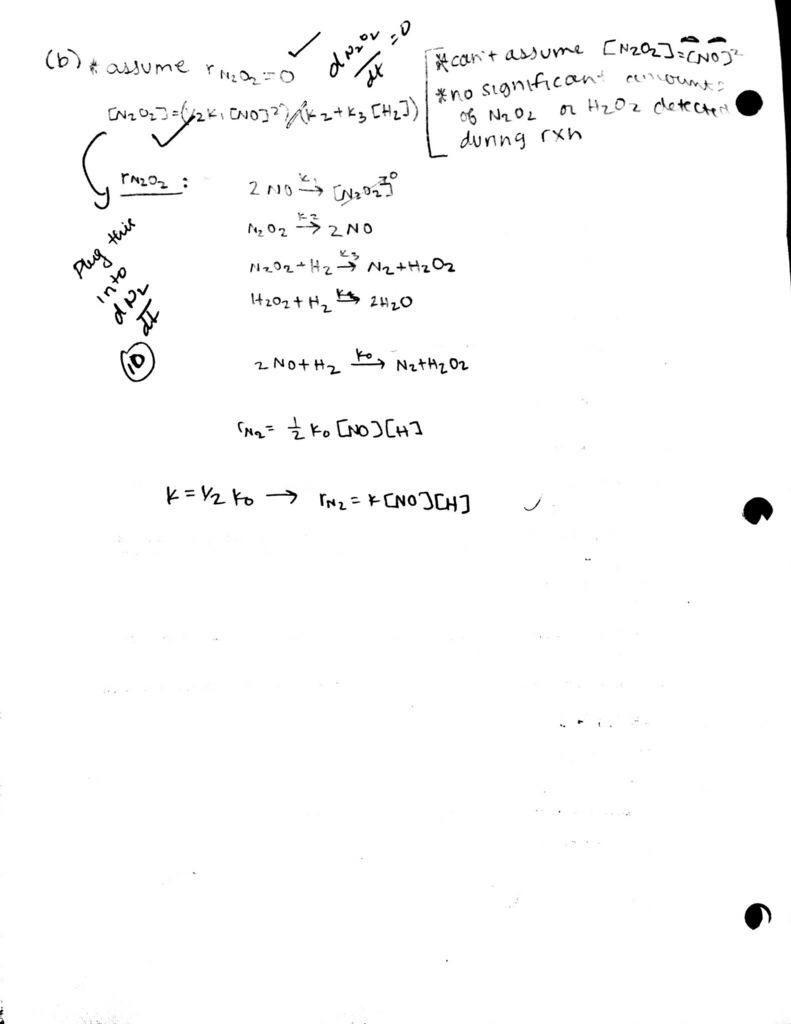 (b) * assume r N2O2 = 0 ✓ dN2O2/dt = 0
[N2O2] = (1/2 k1 [NO]²)/(k2 + k3 [H2])
*can't assume [N2O2] = [NO]²
*no significant amounts
of N2O2 or H2O2 detected
during rxn
rN2O2 :
2 NO →k1 [N2O2]⁷⁰
N2O2 →k2 2 NO
N2O2 + H2 →k3 N2 + H2O2
H2O2 + H2 → 2H2O
Plug this
into
dN2/dt
10
2 NO + H2 →k0 N2 + H2O2
rN2 = 1/2 k0 [NO][H]
k = 1/2 k0 → rN2 = k[NO][H] ✓